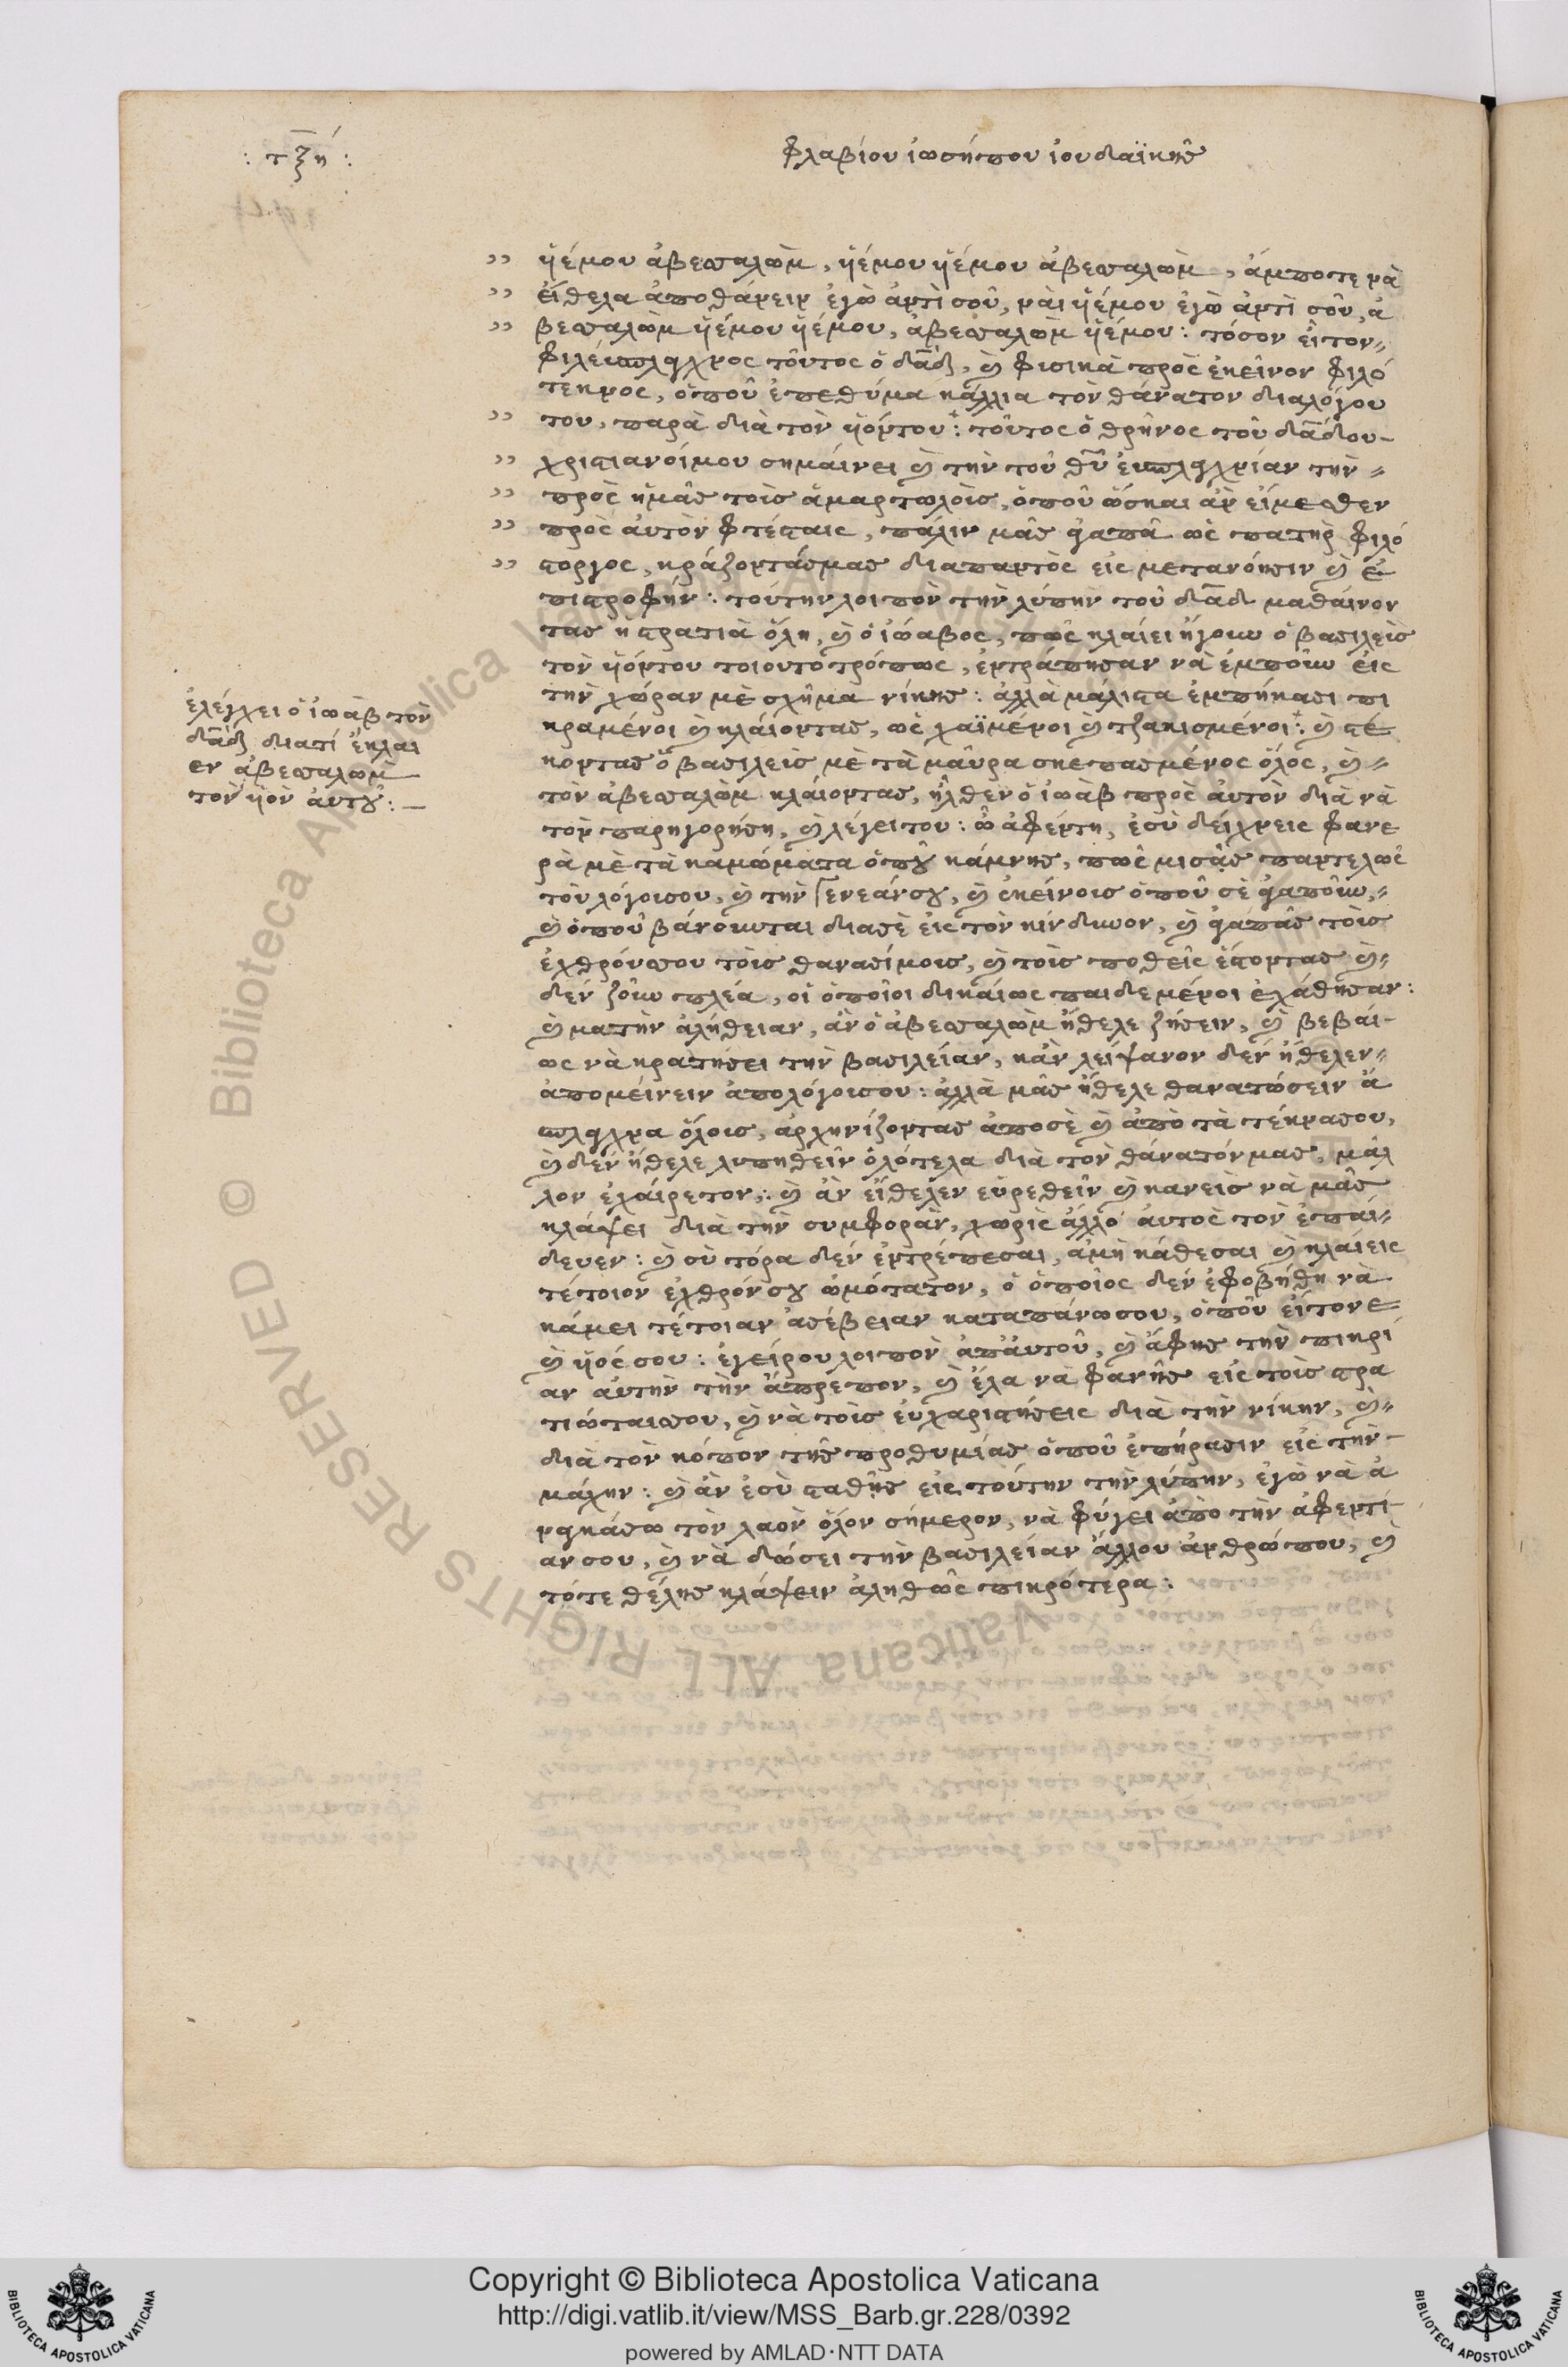 : τξή :
φλαβίου ἰωσήπου ἰουδαϊκῆς
ὑϊέμου ἀβεσαλὼμ, ὑϊέμου ὑϊέμου ἀβεσαλὼμ, ἄμποτε νὰ
εἴθελα ἀποθάνειν ἐγὼ ἀντὶ σοῦ, ναὶ ὑϊέμου ἐγὼ ἀντὶ σοῦ, ἀ
βεσαλὼμ ὑϊέμου ὑϊέμου, ἀβεσαλὼμ ὑϊέμου : τόσον εἴτον
φιλεύσπλαγχνος τοῦτος ὁ δᾱδ, ϗ φισικὰ πρὸς ἐκεῖνον φιλό
τεκνος, ὁποῦ ἐπεθύμα κάλλια τὸν θάνατον διαλόγου
του, παρὰ διὰ τὸν ὑϊόντου : τοῦτος ὁ θρῆνος τοῦ δᾱδου
χριστιανοίμου σημαίνει ϗ τὴν τοῦ θῡ εὐσπλαγχνίαν τὴν
πρὸς ἡμᾶς τοὶς ἁμαρτωλοὶς, ὁποῦ ὤσκαι ἂν εἴμεσθεν
πρὸς αὐτὸν φτέσταις, πάλιν μᾶς ἀγαπᾶ ὡς πατὴρ φιλό
στοργος, κράζοντάσμας διαπαντὸς εἰς μετανόησιν ϗ ἐ
πιστροφήν : τούτην λοιπὸν τὴν λύπην τοῦ δᾱδ μαθαίνον
τας ἡ στρατιὰ ὅλη, ϗ ὁ ἰώαβος, πῶς κλαίει ἤγουν ὁ βασιλεὶς
τὸν ὑϊόντου τοιουτοτρόπως, ἐντράπησαν νὰ ἐμποῦν εἰς
τὴν χώραν μὲ σχῆμα νίκης : ἀλλὰ μάλιστα ἐμπήκασι πι
κραμένοι ϗ κλαίοντας, ὡς χαϊμένοι ϗ τζακισμένοι : ϗ στέ
κοντας ὁ βασιλεὶς μὲ τὰ μαῦρα σκεπασμένος ὅλος, ϗ
τὸν ἀβεσαλὼμ κλαίοντας, ἦλθεν ὁ ἰωὰβ πρὸς αὐτὸν διὰ νὰ
τὸν παρηγορήση, ϗ λέγει του : ὦ ἀφέντη, ἐσὺ δείχνεις φανε
ρὰ μὲ τὰ καμώματα ὁποῦ κάμνης, πῶς μισᾶς παντελῶς
τοῦ λόγοισου, ϗ τὴν γενεάνσου, ϗ ἐκείνοις ὁποῦ σὲ ἀγαποῦν,
ϗ ὁποῦ βάνουνται διασὲ εἰς τὸν κίνδυνον, ϗ ἀγαπᾶς τοὶς
ἐχθρούσσου τοὶς θανασίμοις, ϗ τοὶς ποθεῖς ἔστοντας ϗ
δὲν ζοῦν πλέα, οἱ ὁποῖοι δικαίως παιδεμένοι ἐχάθησαν :
ϗ ματὴν ἀλήθειαν, ἂν ὁ ἀβεσαλὼμ ἤθελε ζήσειν, ϗ βεβαί
ως νὰ κρατήσει τὴν βασιλείαν, κἂν λείψανον δὲν ἤθελεν
ἀπομείνειν ἀπολόγοισου : ἀλλὰ μᾶς ἤθελε θανατώσειν ἄ
σπλαγχνα ὅλοις, ἀρχηνίζοντας ἀποσὲ ϗ ἀπὸ τὰ τέκνασου,
ϗ δὲν ἤθελε λυπηθεῖν ὁλότελα διὰ τὸν θάνατόνμας, μάλ
λον ἐχαίρετον : ϗ ἂν εἴθελεν εὑρεθεῖν ϗ κανεὶς νὰ μᾶς
κλάψει διὰ τὴν συμφορὰν, χωρὶς ἄλλο αὐτὸς τὸν ἐπαί
δευεν : ϗ σὺ τόρα δὲν ἐντρέπεσαι, ἀμὴ κάθεσαι ϗ κλαίεις
τέτοιον ἐχθρόνσου ὠμότατον, ὁ ὁποῖος δὲν ἐφοβήθη νὰ
κάμει τέτοιαν ἀσέβειαν καταπάνωσου, ὁποῦ εἴτονε
ϗ ὑϊός σου : ἐγείρου λοιπὸν ἀπαὐτοῦ, ϗ ἄφησ τὴν πικρί
αν αὐτὴν τὴν ἄπρεπον, ϗ ἔλα νὰ φανῆς εἰς τοὶς στρα
τιώταισσου, ϗ νὰ τοὶς εὐχαριστήσεις διὰ τὴν νίκην, ϗ
διὰ τὸν κόπον τῆς προθυμίας ὁποῦ ἐπήρασιν εἰς τὴν
μάχην : ϗ ἂν ἐσὺ σταθῆς εἰς τούτην τὴν λύπην, ἐγὼ νὰ ἀ
ναγκάσω τὸν λαὸν ὅλον σήμερον, νὰ φύγει ἀπὸ τὴν ἀφεντί
αν σου, ϗ νὰ δώσει τὴν βασιλείαν ἄλλου ἀνθρώπου, ϗ
τότε θέλης κλάψειν ἀληθῶς πικρότερα :
ἐλέγχει ὁ ἰωὰβ τὸν
δᾱδ διατί ἔκλαι
εν ἀβεσαλὼμ
τὸν ὑϊὸν αὐτοῦ : —
Biblioteca Apostolica Vaticana ALL RIGHTS RESERVED ©
Copyright © Biblioteca Apostolica Vaticana
http://digi.vatlib.it/view/MSS_Barb.gr.228/0392
powered by AMLAD·NTT DATA
BIBLIOTECA APOSTOLICA VATICANA
BIBLIOTECA APOSTOLICA VATICANA